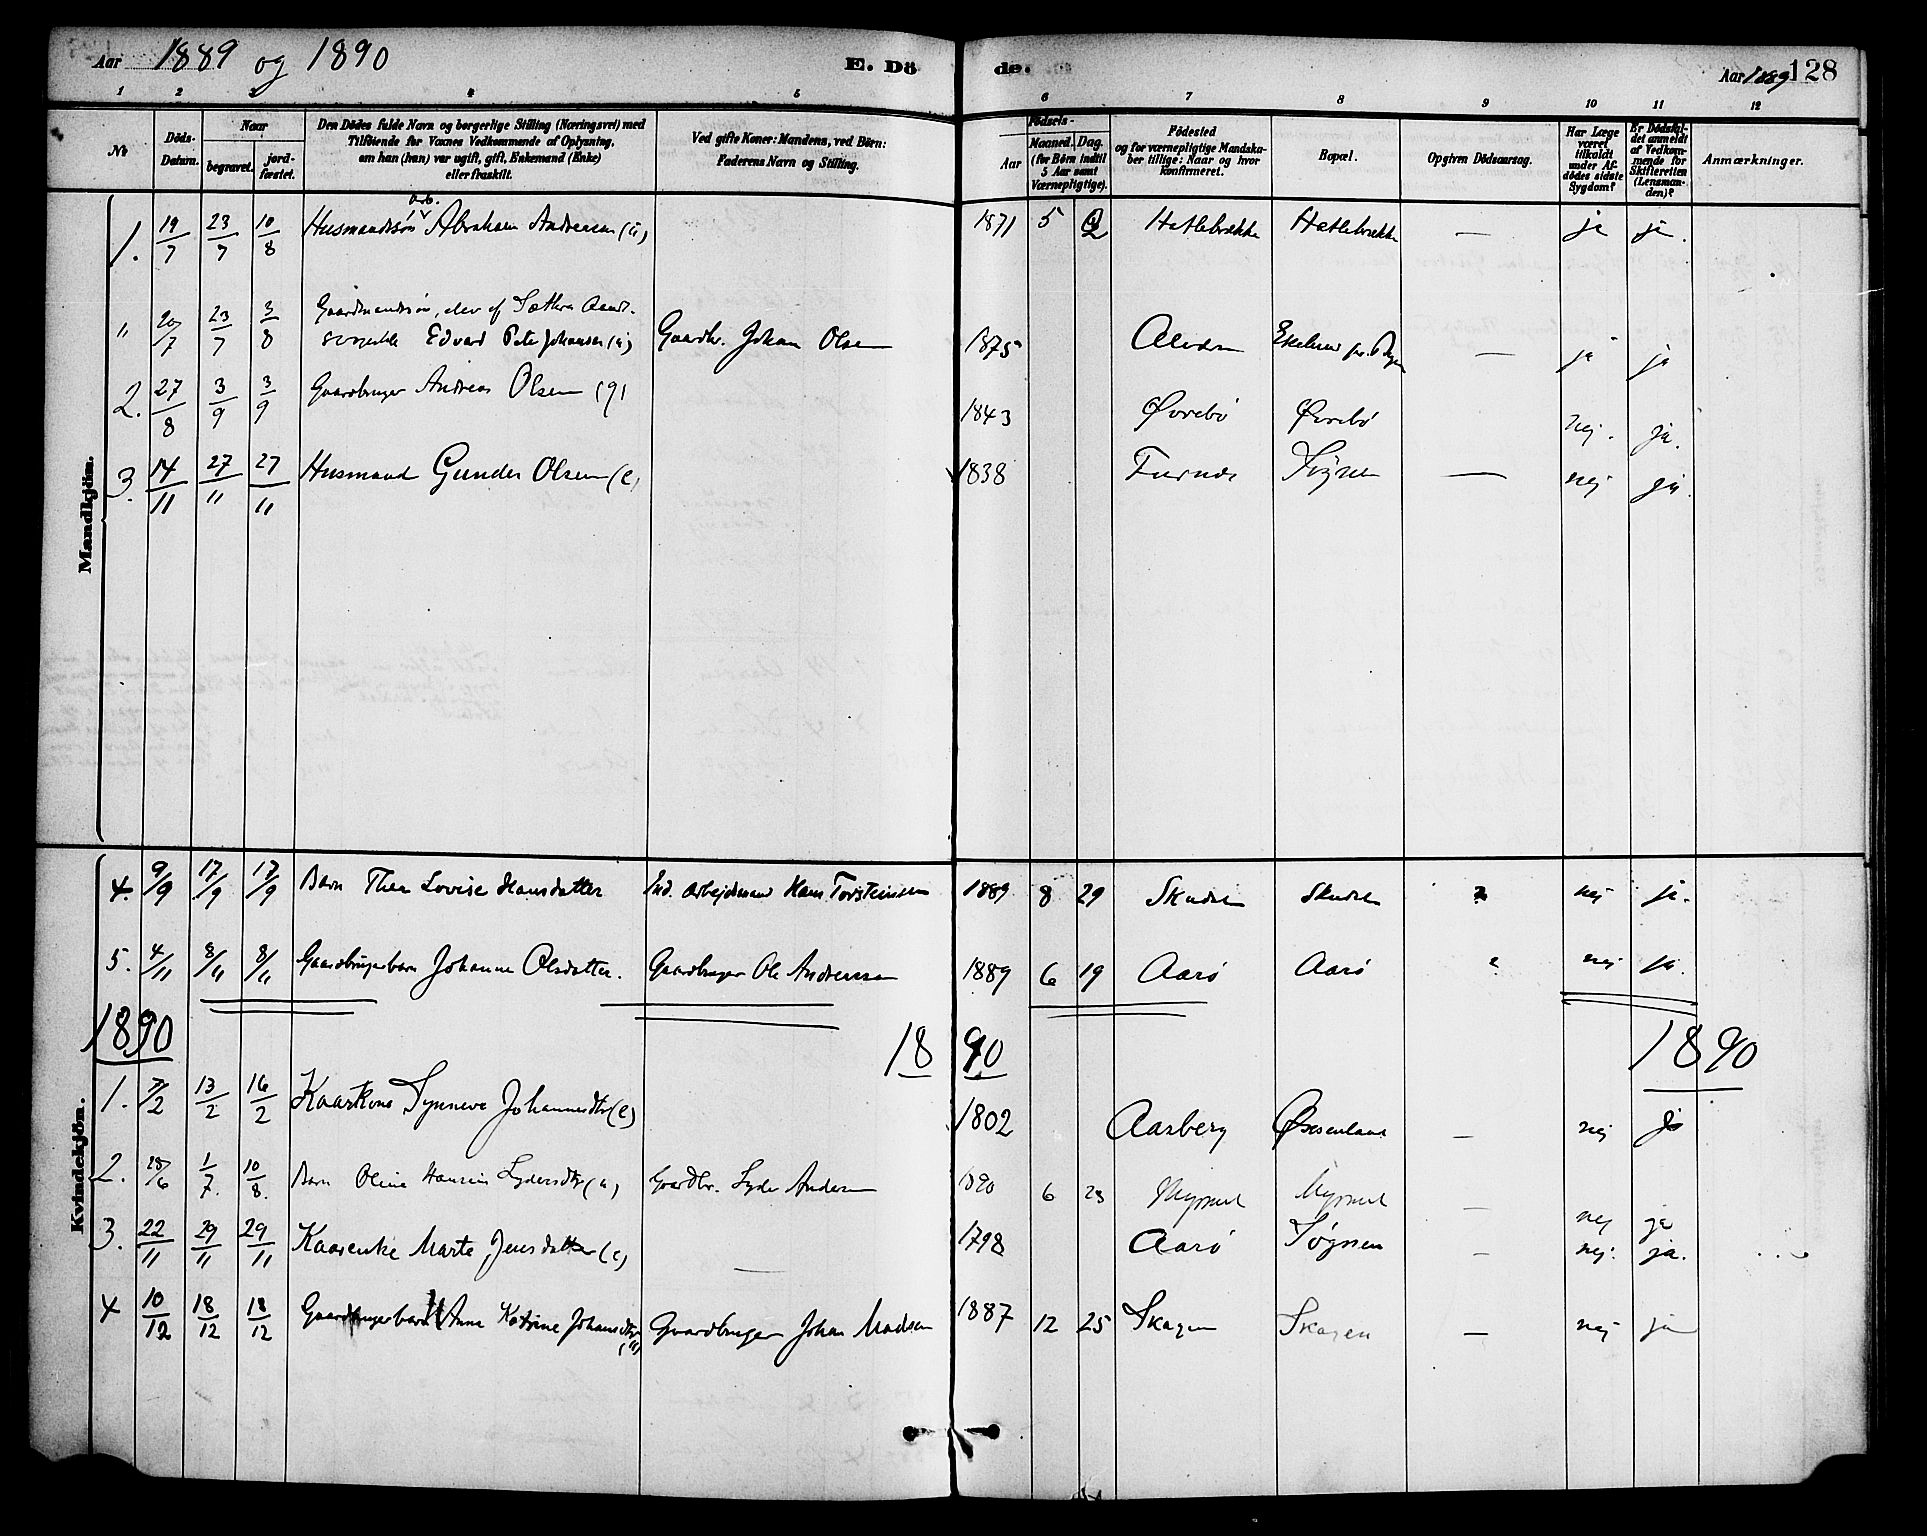 Aar 1889 og 1890 E. Dö de. Aar 1889 128
1 2 3 4 5 6 7 8 9 10 11 12
№ Döds-Datum. Naar begravet. jord-fæstet. Den Dödes fulde Navn og borgerlige Stilling (Næringsvei) med Tilföiende for Voxnes Vedkommende af Oplysning, om han (hun) var ugift, gift, Enkemand (Enke) eller fraskilt. Ved gifte Koner: Mandens, ved Börn: Faderens Navn og Stilling. Födsels- Aar Maaned. Dag. (for Börn indtil 5 Aar samt Værnepligtige). Födested og for værnepligtige Mandska-ber tillige: Naar og hvor konfirmeret. Bopæl. Opgiven Dödsaarsag. Har Læge været tilkaldt under Af-dödes sidste Sygdom? Er Dödsfal-det anmeldt af Vedkom-mende for Skifteretten (Lensman-den)? Anmærkninger.
Mandkjön.
1. 19/7 23/7 10/8 Husmandssøn arb. Abraham Andreassen (u) 1871 5 Hatlebrække Hatlebrække — ja ja.
" 20/7 23/7 3/8 Gaardmandssøn, elev af
Edvard Peter Johansen (u) Gaardbr. Johan Olsen 1875 — ja ja
2. 27/8 3/9 3/9 Gaardbruger Andreas Olsen (g) 1843 Øvrebö Øvrebö nej. ja.
3. 14/11 27/11 27/11 Husmand Gunder Olsen (e) 1838 Furnes Sögnen — nej ja.
Kvindekjön.
4. 9/9 17/9 17/9 Barn Thea Lovise Hansdatter Ind. Arbejdsmand Hans Torsteinsen 1889 8 29 Skuden Skuden ? nej ja.
5. 4/11 8/11 8/11 Gaardbrugerbarn Johanne Olsdatter. Gaardbruger Ole Andreassen 1889 6 19 Aarö Aarö nej ja.
1890 1890 1890
1. 7/2 13/2 16/2 Kaarkone Synneve Johannesdtr (e) 1802 Aasberg — nej ja
2. 28/6 1/7. 10/8. Barn Oline Hansine Lydersdtr (u) Gaardbr. Lyder Andersen 1890 6 23 — nej ja
3. 22/11 29/11 29/11 Kaarenke Marte Jensdatter (e) — 1798 Aarö Sögnen — nej. ja.
4 10/12 18/12 18/12 Gaardbrugerbarn Anne Katrine Johansdtr (u) Gaardbruger Johan Madsen 1887 12 25 Skagen Skagen — nej ja